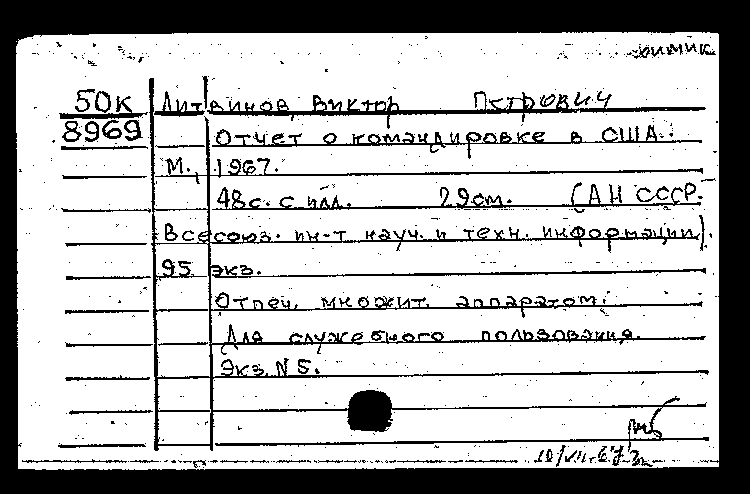 химик
50к Литвинов, Виктор Петрович
8969 Отчет о командировке в США.
М., 1967.
48с. с илл. 29см. (АН СССР.
Всесоюз. ин-т науч. и техн. информации).
95 экз.
Отпеч. множит. аппаратом.
Для служебного пользования.
Экз. N 5.